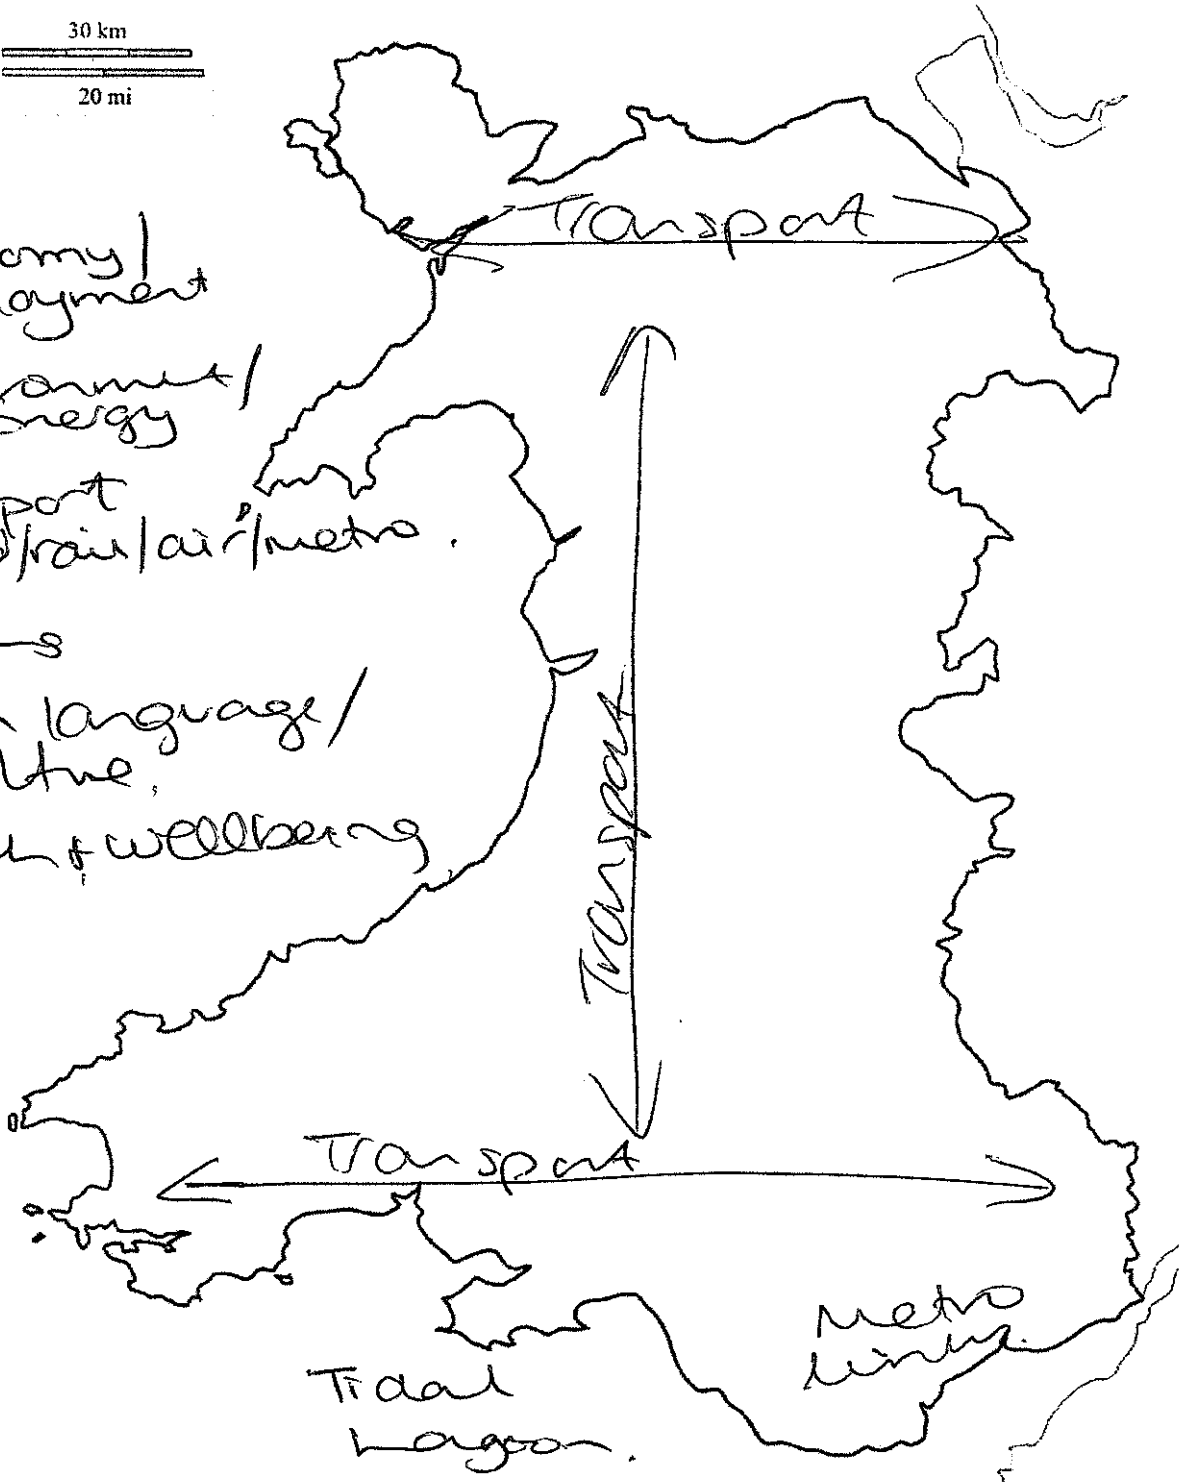 30 km
20 mi
Transport
omy/
oyment
onment/
energy
port
/rail/air/metro.
s
language/
lture.
h + wellbeing
Transport
Transport
Metro
link.
Tidal
Lagoon.